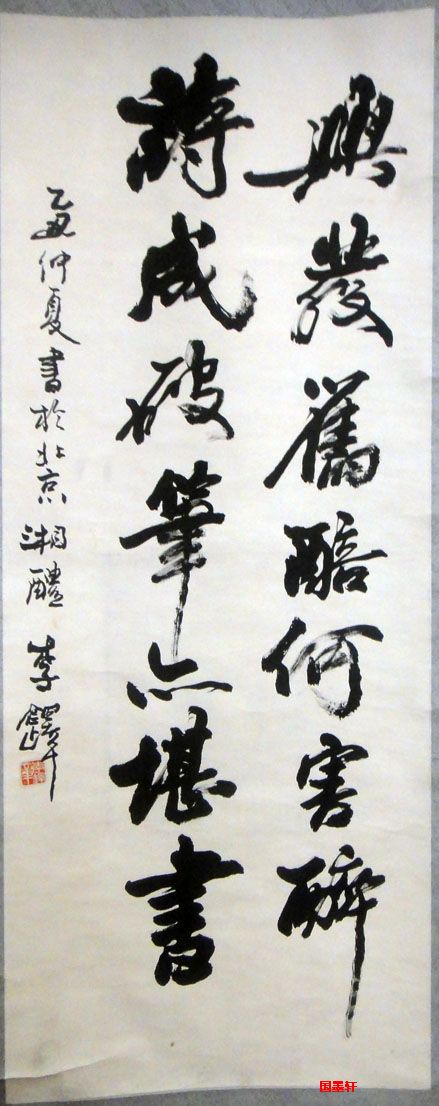 興發舊醅何害醉
詩成破筆亦堪書
乙丑仲夏書於北京湘醴李鐸
国墨轩